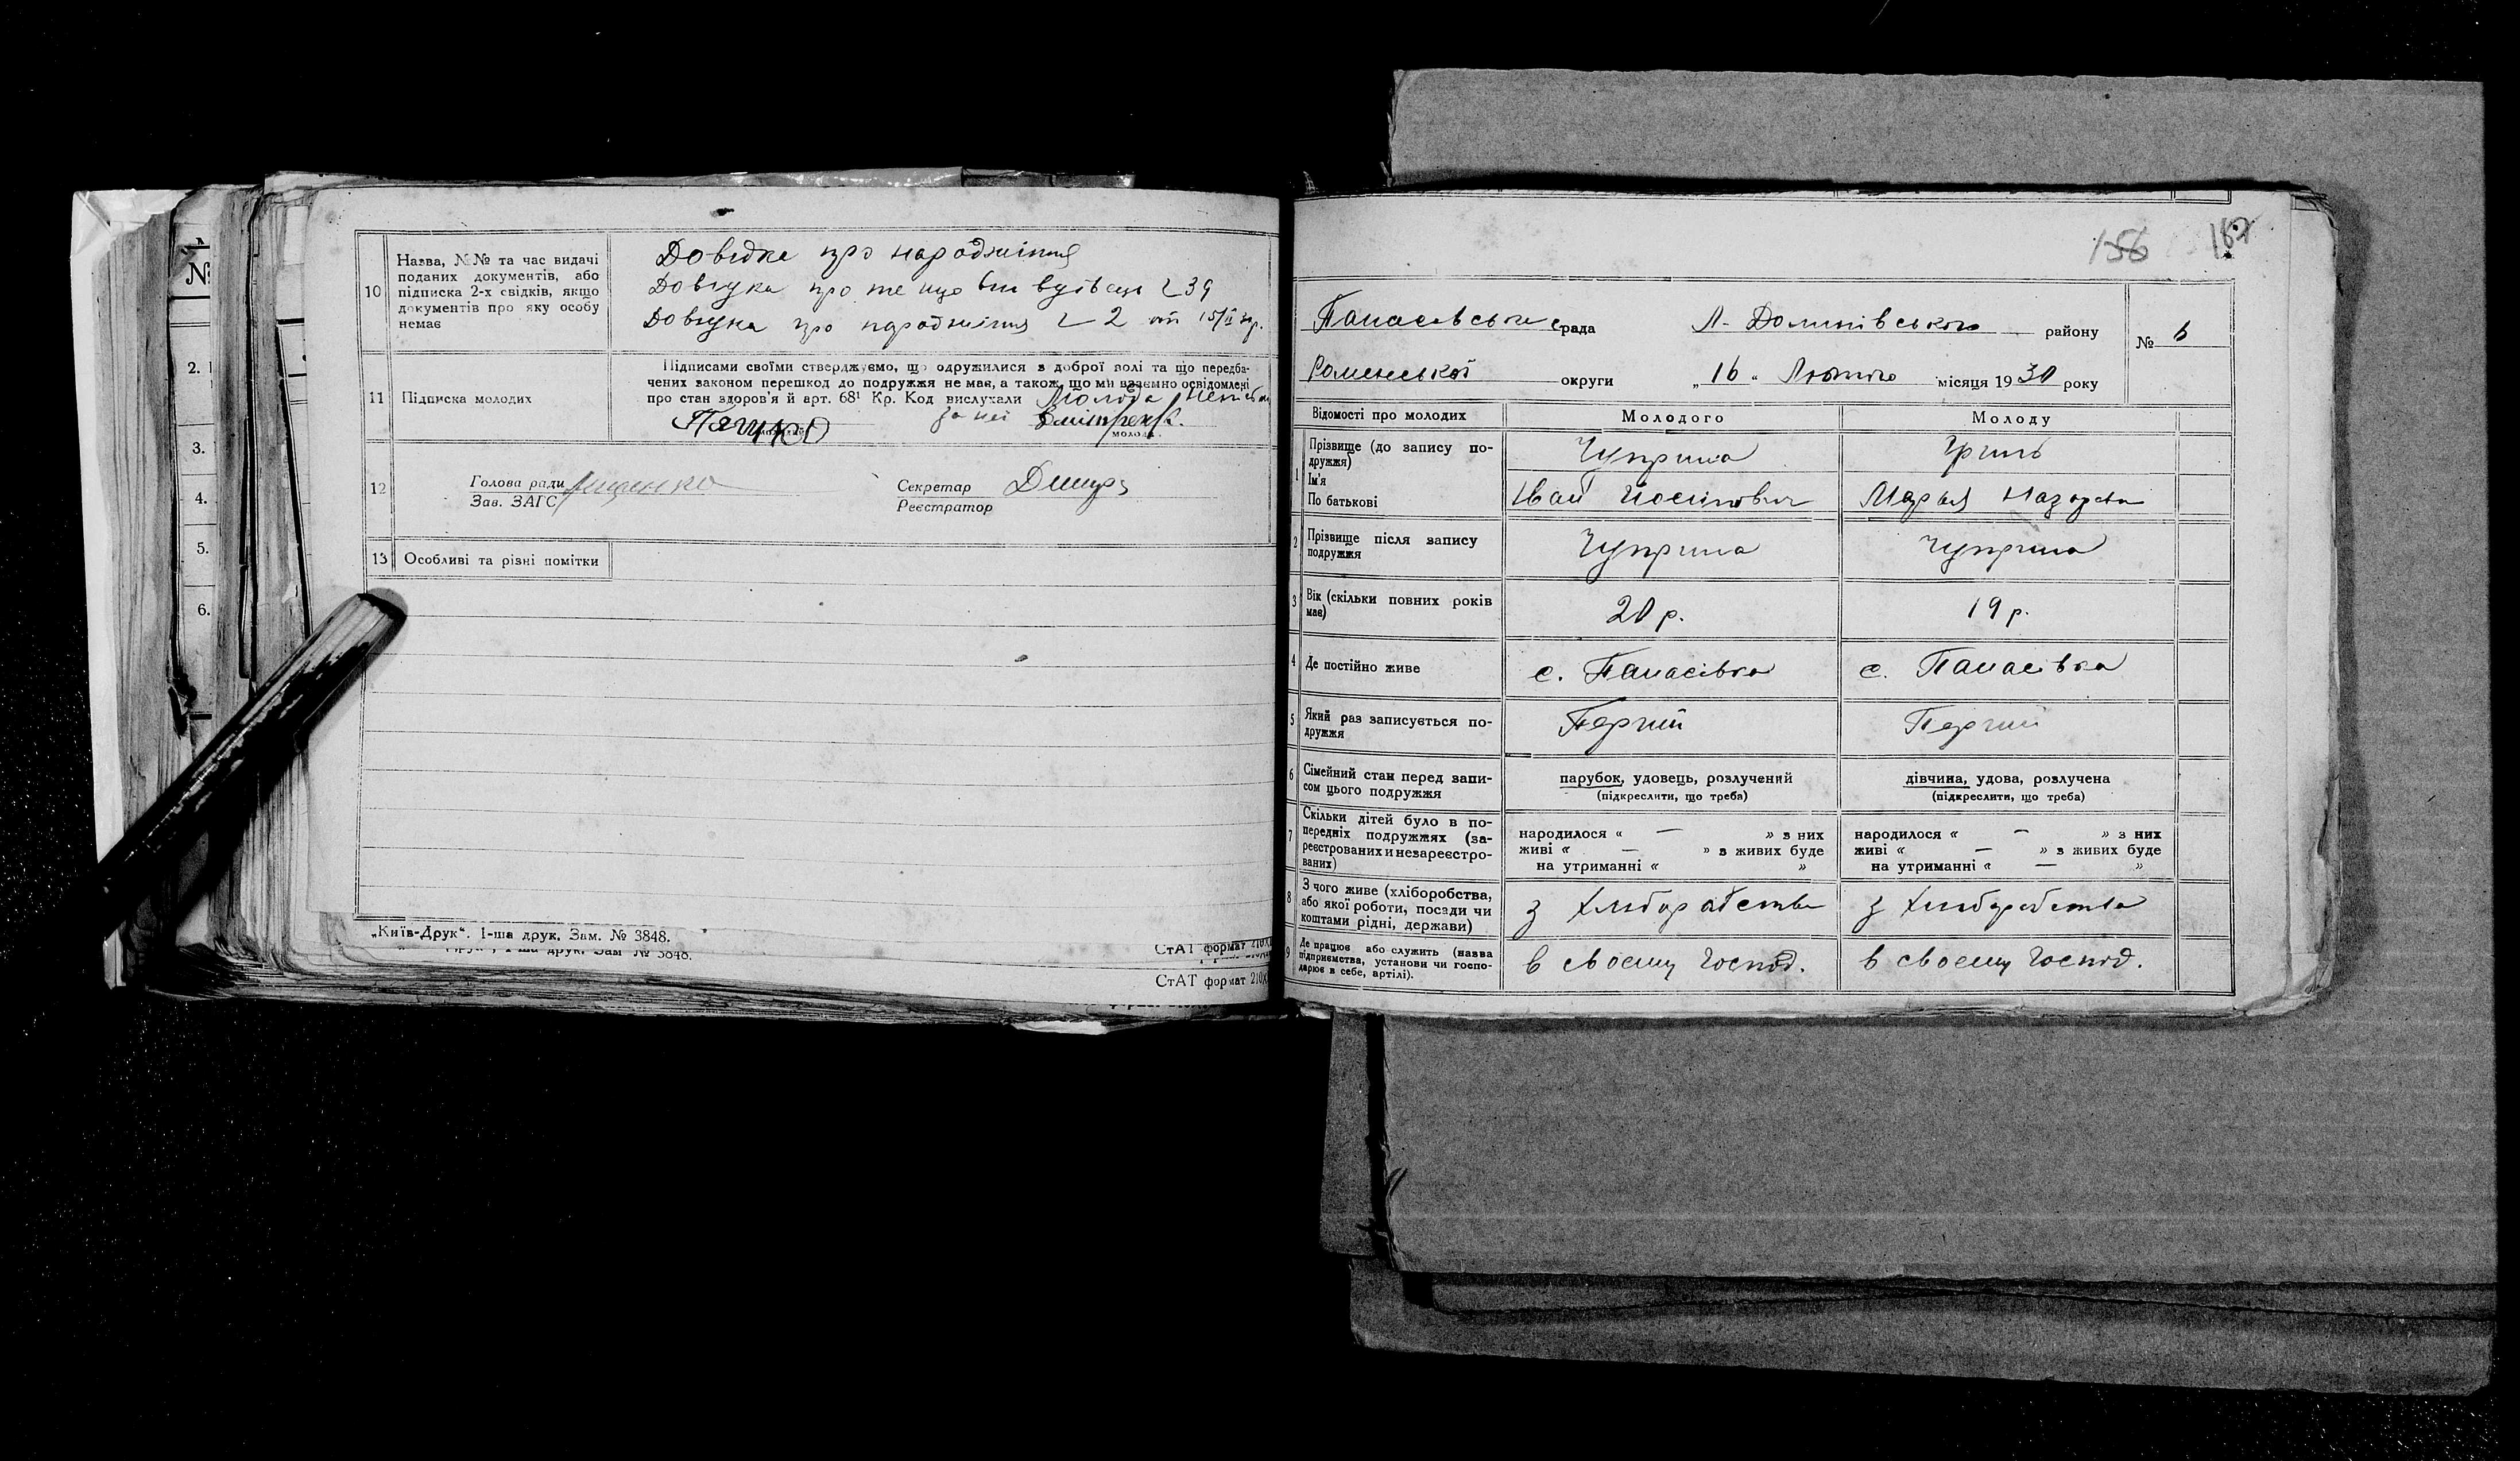 №
2.
3.
4.
5.
6.
10
Назва, №№ та час видачі
поданих документів, або
підписка 2-х свідків, якщо
документів про яку особу
немає
Довідка про народжіння
Довідка про те що він вдівець 39
Довідка про народжіння 2 от 15/II
11
Підписка молодих
Підписами своїми стверджуємо, що одружилися з доброї волі та що передба-
чених законом перешкод до подружжя не має, а також, що ми взаємно освідомлені
про стан здоров'я й арт. 68¹ Кр. Код вислухали Молода
за неї
молод.
12
Голова ради Лященко
Зав. ЗАГС
Секретар
Реєстратор
13
Особливі та різні помітки
„Київ-Друк“. 1-ша друк. Зам. № 3848.
1-ша друк. Зам № 3848.
СтАТ формат 210X
СтАТ формат 210X
156 187
Панасівська рада Л-Долинівського району
№ 6
Роменської округи „16“ Лютого місяця 1930 року
Відомості про молодих
Молодого
Молоду
1
Прізвище (до запису по-
дружжя)
Ім'я
По батькові
Чуприна
Іван Йосипович
Гринь
Марья Назарівна
2
Прізвище після запису
подружжя
Чуприна
Чуприна
3
Вік (скільки повних років
має)
20 р.
19 р.
4
Де постійно живе
с. Панасівка
с. Панасівка
5
Який раз записується по-
дружжя
Перший
Перший
6
Сімейний стан перед запи-
сом цього подружжя
парубок, удовець, розлучений
(підкреслити, що треба)
дівчина, удова, розлучена
(підкреслити, що треба)
7
Скільки дітей було в по-
передніх подружжях (за-
реєстрованих и незареєстро-
ваних)
народилося « — » з них
живі « — » з живих буде
на утриманні « »
народилося « — » з них
живі « — » з живих буде
на утриманні « — »
8
З чого живе (хліборобства,
або якої роботи, посади чи
коштами рідні, держави)
з хліборобства
з хліборобства
9
Де працює або служить (назва
підприємства, установи чи госпо-
дарює в себе, артілі).
в своєму господ.
в своєму господ.